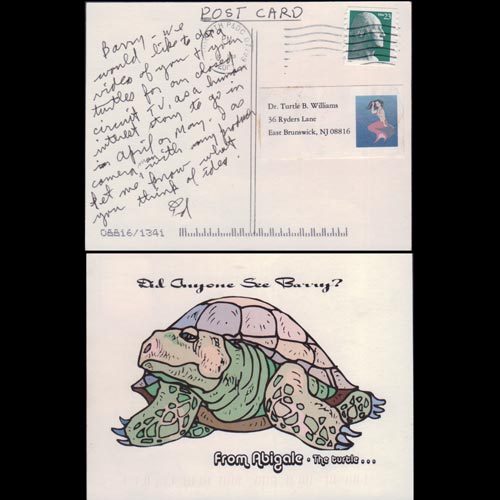 POST CARD
Barry - we
would like to do a
video of you & your
turtles for our closed
circuit TV, as a human
interest story to go in
in April or May. I as
camera man with my producer
Let me know what
you think of idea.
Ed
USA 23
Dr. Turtle B. Williams
36 Ryders Lane
East Brunswick, NJ 08816
08816/1341
Did Anyone See Barry?
From Abigale - The turtle...